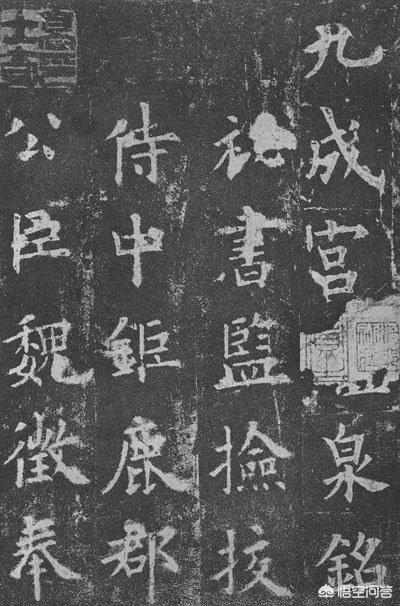 九成宮泉銘
祕書監撿挍
侍中鉅鹿郡
公臣魏徵奉
悟空问答